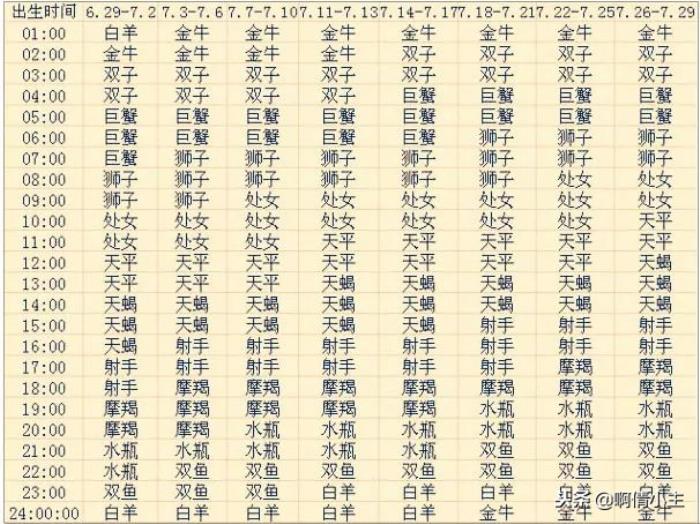 出生时间 6.29-7.2 7.3-7.6 7.7-7.10 7.11-7.13 7.14-7.17 7.18-7.21 7.22-7.25 7.26-7.29
01:00 白羊 金牛 金牛 金牛 金牛 金牛 金牛 金牛
02:00 金牛 金牛 金牛 金牛 双子 双子 双子 双子
03:00 双子 双子 双子 双子 双子 双子 双子 双子
04:00 双子 双子 双子 双子 巨蟹 巨蟹 巨蟹 巨蟹
05:00 巨蟹 巨蟹 巨蟹 巨蟹 巨蟹 巨蟹 巨蟹 巨蟹
06:00 巨蟹 巨蟹 巨蟹 巨蟹 巨蟹 狮子 狮子 狮子
07:00 巨蟹 狮子 狮子 狮子 狮子 狮子 狮子 狮子
08:00 狮子 狮子 狮子 狮子 狮子 狮子 处女 处女
09:00 狮子 狮子 处女 处女 处女 处女 处女 处女
10:00 处女 处女 处女 处女 处女 处女 处女 天平
11:00 处女 处女 处女 天平 天平 天平 天平 天平
12:00 天平 天平 天平 天平 天平 天平 天平 天平
13:00 天平 天平 天平 天蝎 天蝎 天蝎 天蝎 天蝎
14:00 天蝎 天蝎 天蝎 天蝎 天蝎 天蝎 天蝎 天蝎
15:00 天蝎 天蝎 天蝎 天蝎 射手 射手 射手 射手
16:00 天蝎 射手 射手 射手 射手 射手 射手 射手
17:00 射手 射手 射手 射手 射手 射手 摩羯 摩羯
18:00 射手 摩羯 摩羯 摩羯 摩羯 摩羯 摩羯 摩羯
19:00 摩羯 摩羯 摩羯 摩羯 摩羯 水瓶 水瓶 水瓶
20:00 摩羯 摩羯 水瓶 水瓶 水瓶 水瓶 水瓶 水瓶
21:00 水瓶 水瓶 水瓶 水瓶 水瓶 双鱼 双鱼 双鱼
22:00 水瓶 双鱼 双鱼 双鱼 双鱼 双鱼 双鱼 双鱼
23:00 双鱼 双鱼 双鱼 白羊 白羊 白羊 白羊 白羊
24:00:00 白羊 白羊 白羊 白羊 白羊 金牛 金牛 金牛
头条 @啊倩小主